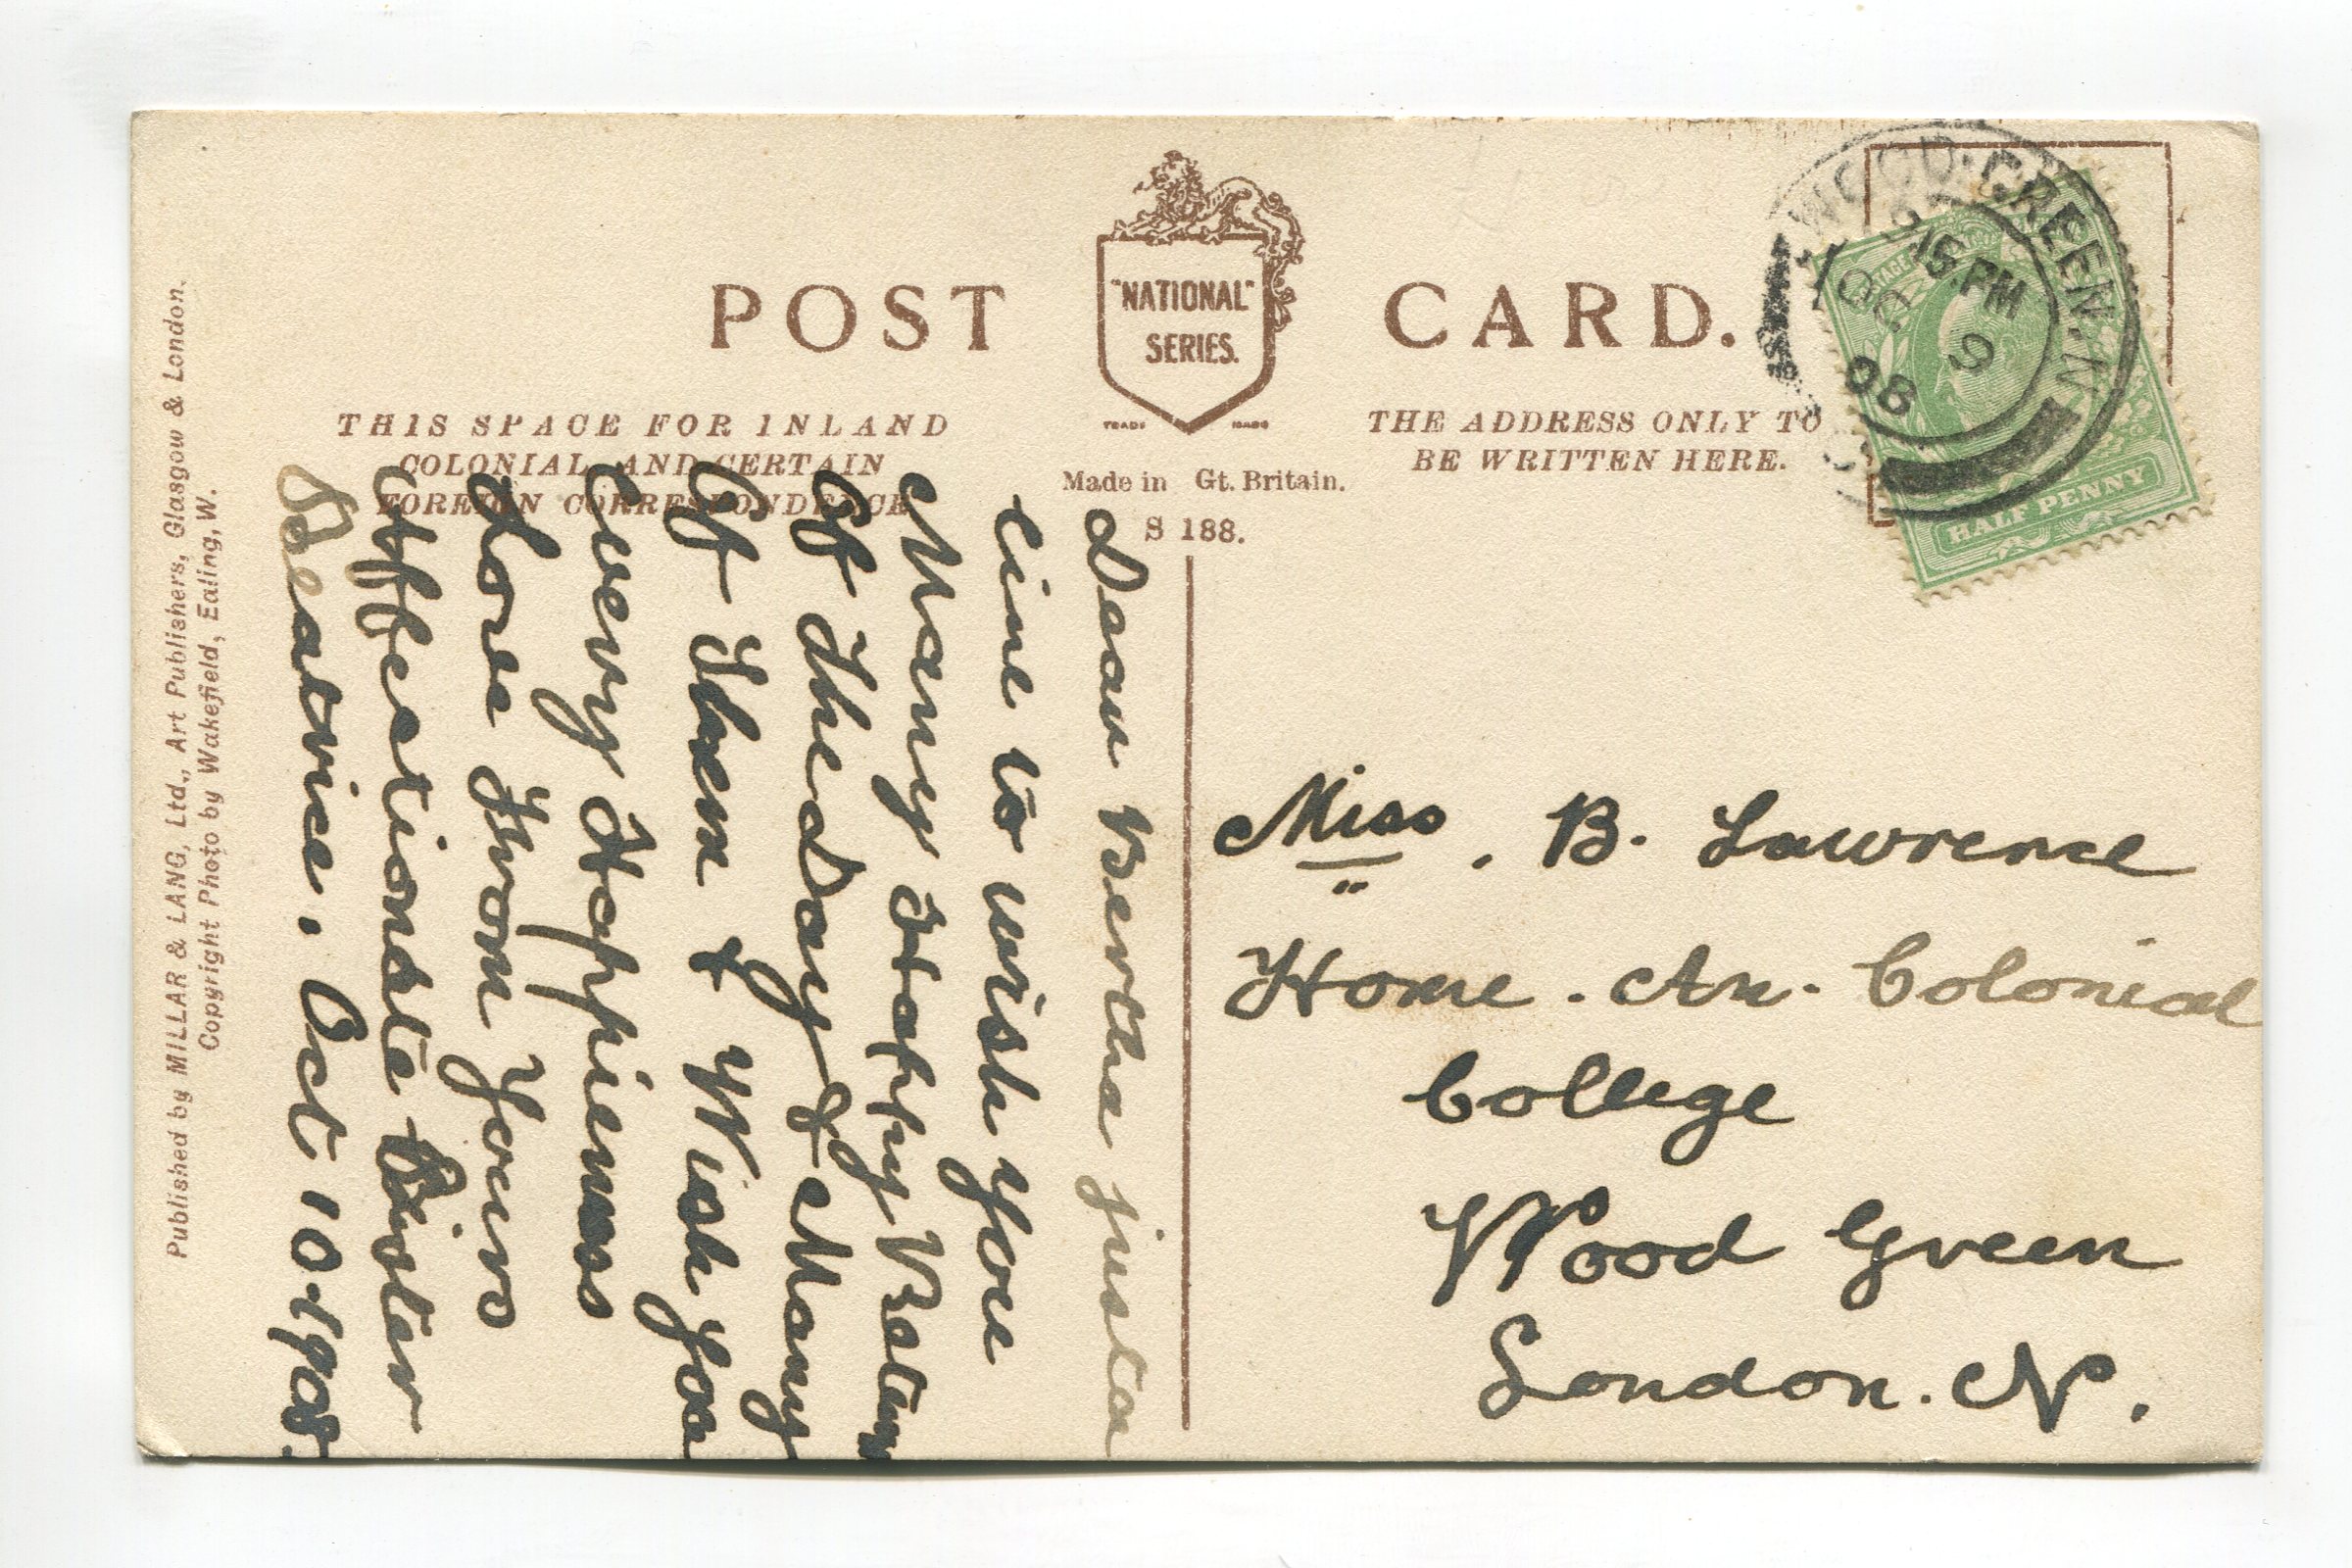 POST CARD.
"NATIONAL"
SERIES.
TRADE MARK
THIS SPACE FOR INLAND
COLONIAL AND CERTAIN
FOREIGN CORRESPONDENCE
Made in Gt. Britain.
S 188.
THE ADDRESS ONLY TO
BE WRITTEN HERE.
WOOD·GREEN·N
15 PM
OC 9
08
HALF PENNY
Dear Bertha just a
line to wish you
Many Happy Return
Of the Day & Many
Of Them & Wish you
Every Happieness
Love From Yours
Affectionate Sister
Beatrice. Oct 10-1908.
Miss. B. Lawrence
Home. An. Colonial
College
Wood Green
London. N.
Published by MILLAR & LANG, Ltd., Art Publishers, Glasgow & London.
Copyright Photo by Wakefield, Ealing, W.